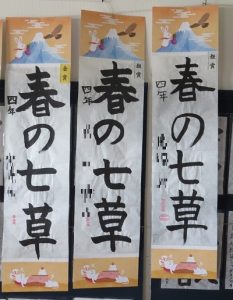 春の七草
四年
金賞
春の七草
四年
銀賞
春の七草
四年
銀賞